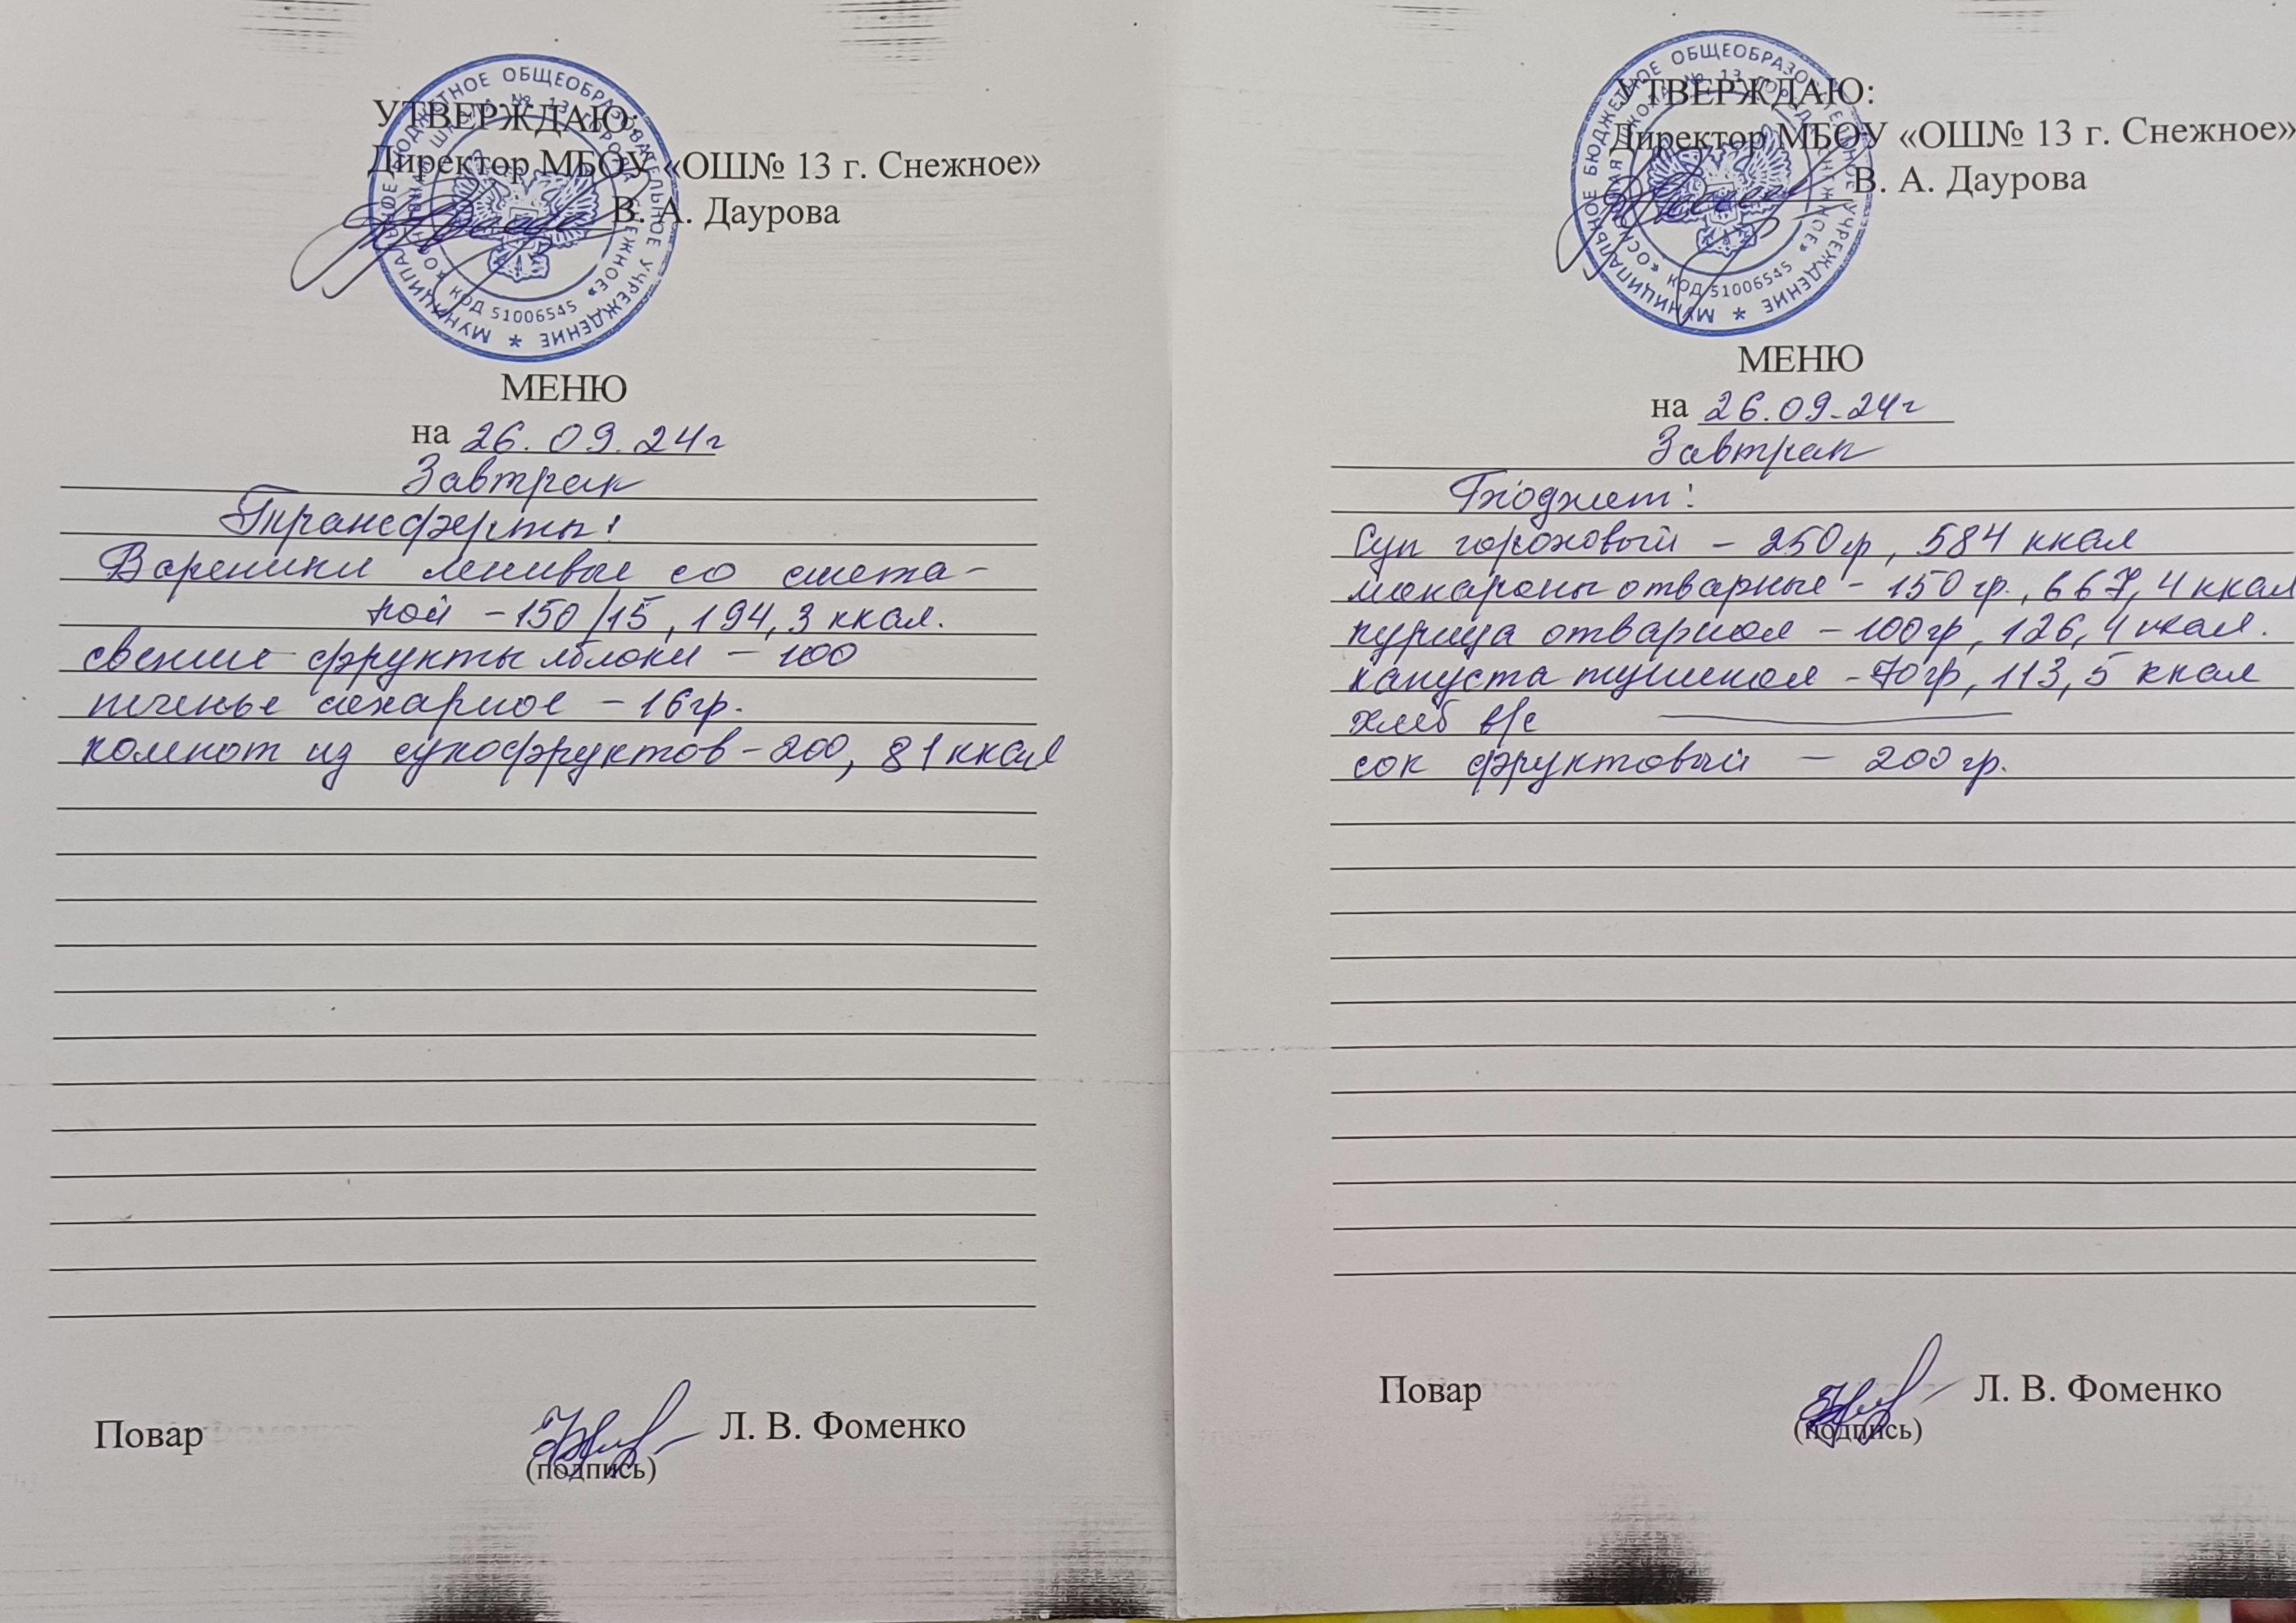 УТВЕРЖДАЮ:
Директор МБОУ «ОШ№ 13 г. Снежное»
В. А. Даурова
МУНИЦИПАЛЬНОЕ БЮДЖЕТНОЕ ОБЩЕОБРАЗОВАТЕЛЬНОЕ УЧРЕЖДЕНИЕ *
«ОСНОВНАЯ ШКОЛА № 13 ГОРОДА СНЕЖНОЕ»
КОД 51006545
МЕНЮ
на 26.09.24г
Завтрак
Трансферты:
Вареники ленивые со смета-
ной - 150/15, 194,3 ккал.
свежие фрукты яблоки - 100
печенье сахарное - 16гр.
компот из сухофруктов - 200, 81 ккал
Повар
Л. В. Фоменко
(подпись)
УТВЕРЖДАЮ:
Директор МБОУ «ОШ№ 13 г. Снежное»
В. А. Даурова
МУНИЦИПАЛЬНОЕ БЮДЖЕТНОЕ ОБЩЕОБРАЗОВАТЕЛЬНОЕ УЧРЕЖДЕНИЕ *
«ОСНОВНАЯ ШКОЛА № 13 ГОРОДА СНЕЖНОЕ»
КОД 51006545
МЕНЮ
на 26.09.24г
Завтрак
Бюджет:
Суп гороховый - 250гр, 584 ккал
макароны отварные - 150 гр., 667,4 ккал
курица отварная - 100гр, 126,4 ккал.
капуста тушеная - 70гр, 113,5 ккал
хлеб в/с
сок фруктовый - 200 гр.
Повар
Л. В. Фоменко
(подпись)